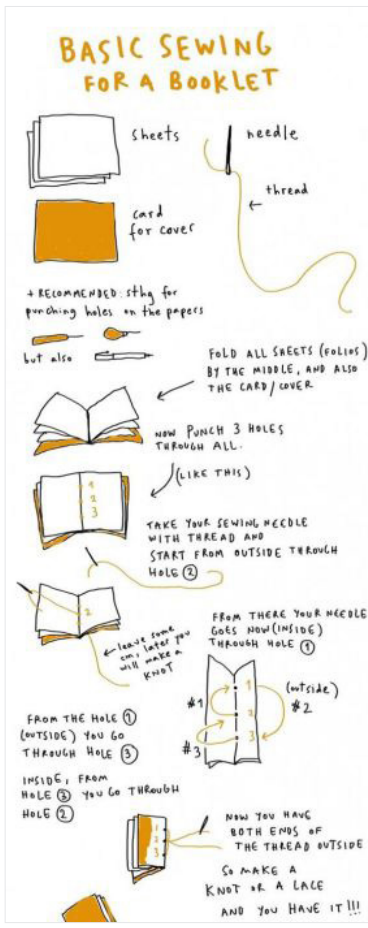 BASIC SEWING
FOR A BOOKLET
sheets
needle
thread
card
for cover
+ RECOMMENDED: sthg for
punching holes on the papers
but also
FOLD ALL SHEETS (FOLIOS)
BY THE MIDDLE, AND ALSO
THE CARD/COVER
NOW PUNCH 3 HOLES
THROUGH ALL.
(LIKE THIS)
1
2
3
TAKE YOUR SEWING NEEDLE
WITH THREAD AND
START FROM OUTSIDE THROUGH
HOLE 2
2
leave some
cm, later you
will make a
KNOT
FROM THERE YOUR NEEDLE
GOES NOW (INSIDE)
THROUGH HOLE 1
#1
1
2
3
(outside)
#2
#3
FROM THE HOLE 1
(OUTSIDE) YOU GO
THROUGH HOLE 3
INSIDE, FROM
HOLE 3 YOU GO THROUGH
HOLE 2
1
2
3
NOW YOU HAVE
BOTH ENDS OF
THE THREAD OUTSIDE
SO MAKE A
KNOT OR A LACE
AND YOU HAVE IT!!!